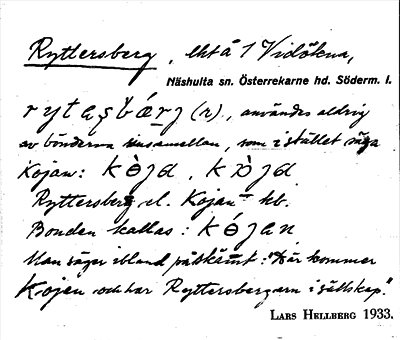 Ryttersberg, lht å 1 Vidökna,
Näshulta sn. Österrekarne hd. Söderm. l.
(r), användes aldrig
av bönderna insemellan, som i stället säga
Kojan:
Ryttersberg el. Kojan hb.
Bonden kallas: kójan
Man säger ibland på skämt: "Här kommer
Kojen och har Ryttersbergarn i sällskap."
LARS HELLBERG 1933.